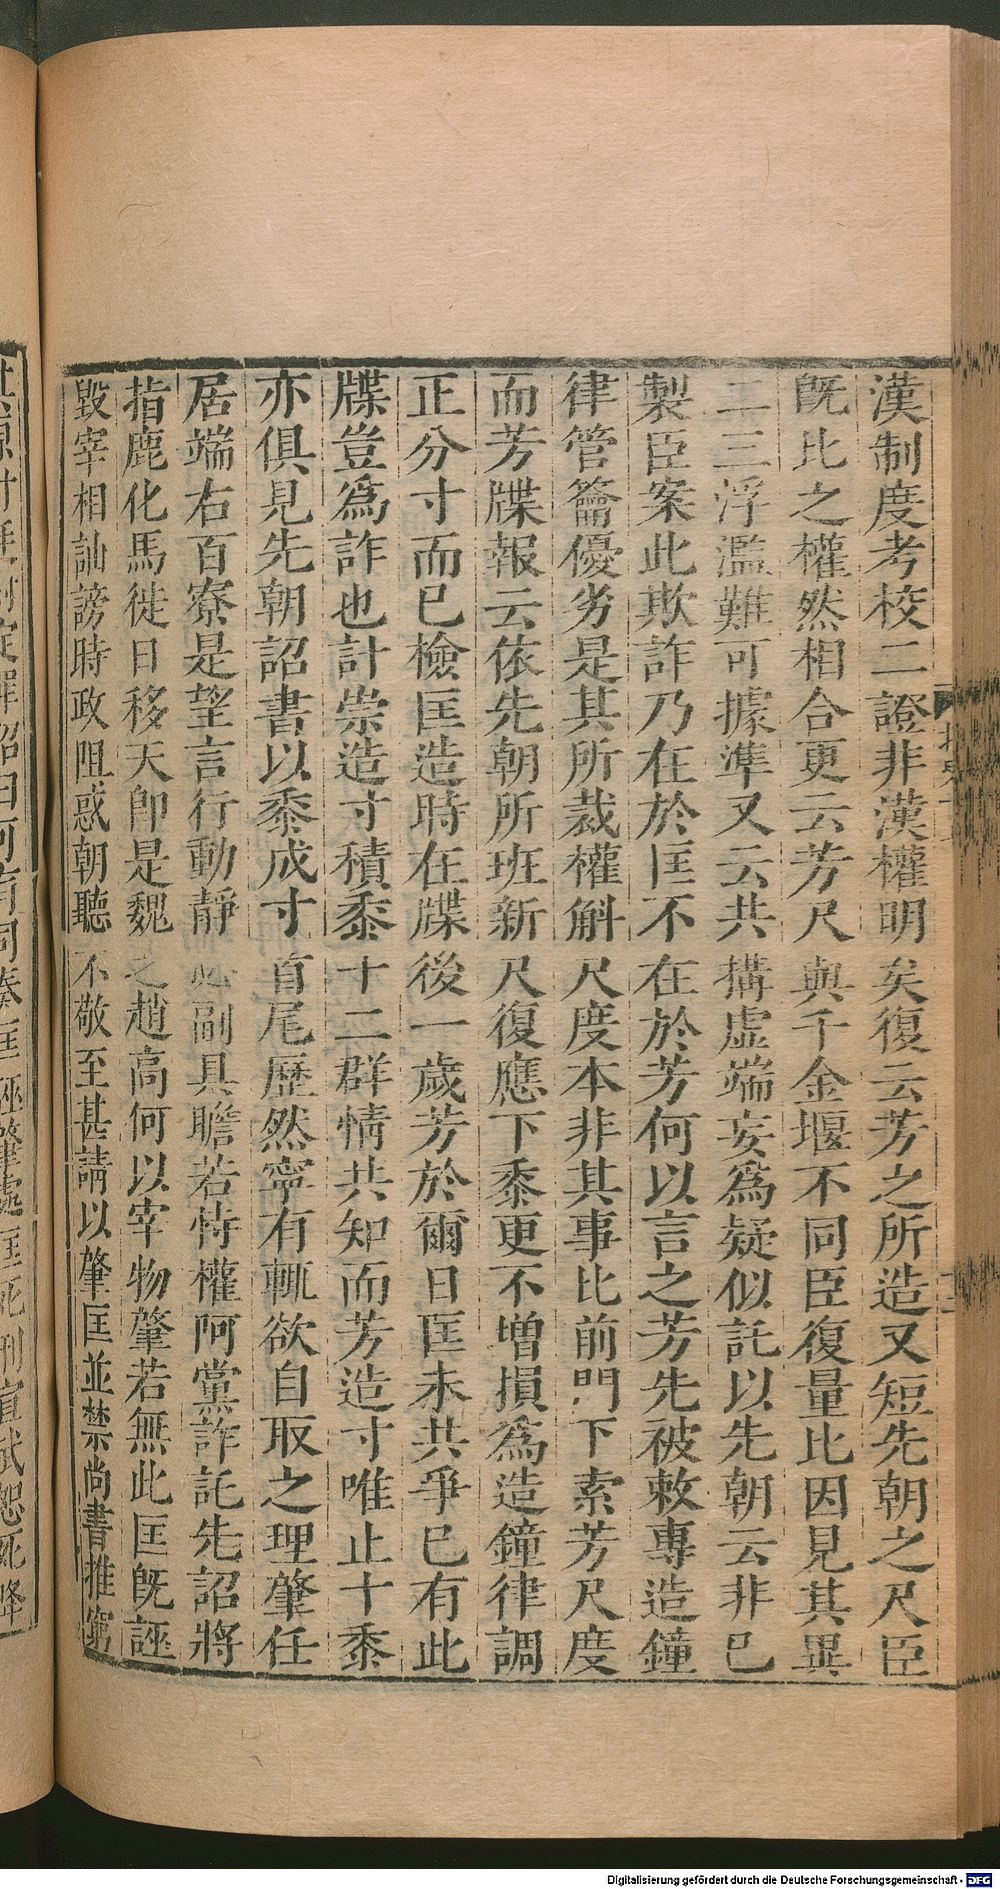 漢制度考校二證非漢權明矣復云芳之所造又短先朝之尺臣
旣比之權然相合更云芳尺與千金堰不同臣復量比因見其異
二三浮濫難可據準又云共搆虛端妄爲疑似託以先朝云非已
製臣案此欺詐乃在於匡不在於芳何以言之芳先被敕專造鐘
律管籥優劣是其所裁權斛尺度本非其事比前門下索芳尺度
而芳牒報云依先朝所班新尺復應下黍更不增損爲造鐘律調
正分寸而已檢匡造時在牒後一歲芳於爾日匡未共爭已有此
牒豈爲詐也計崇造寸積黍十二群情共知而芳造寸唯止十黍
亦俱見先朝詔書以黍成寸首尾歷然寧有輒欲自取之理肇任
居端右百寮是望言行動靜必副具瞻若恃權阿黨詐託先詔將
指鹿化馬徙日移天卽是魏之趙高何以宰物肇若無此匡旣誣
毀宰相訕謗時政阻惑朝聽不敬至甚請以肇匡並禁尚書推窮
Digitalisierung gefördert durch die Deutsche Forschungsgemeinschaft - DFG